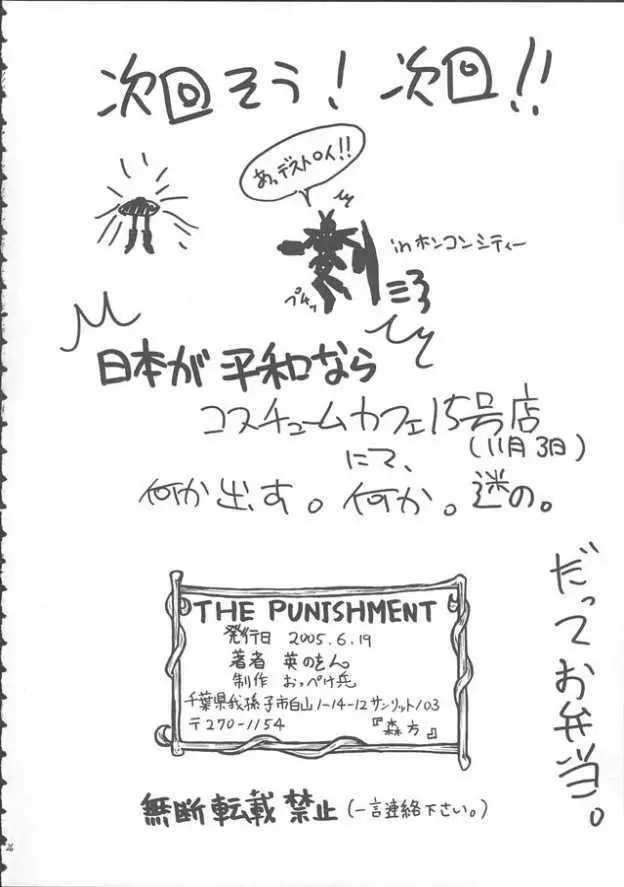 次回そう! 次回!!
あ、デストロイ!!
in ホンコンシティー
プチッ
日本が平和なら
コスチュームカフェ15号店
(11月3日)
にて、
何か出す。何か。謎の。
だってお弁当。
THE PUNISHMENT
発行日 2005.6.19
著者 英のぞん。
制作 おっぺけ兵
千葉県我孫子市白山1-14-12サンリット103
〒270-1154 『森方』
無断転載禁止(一言連絡下さい。)